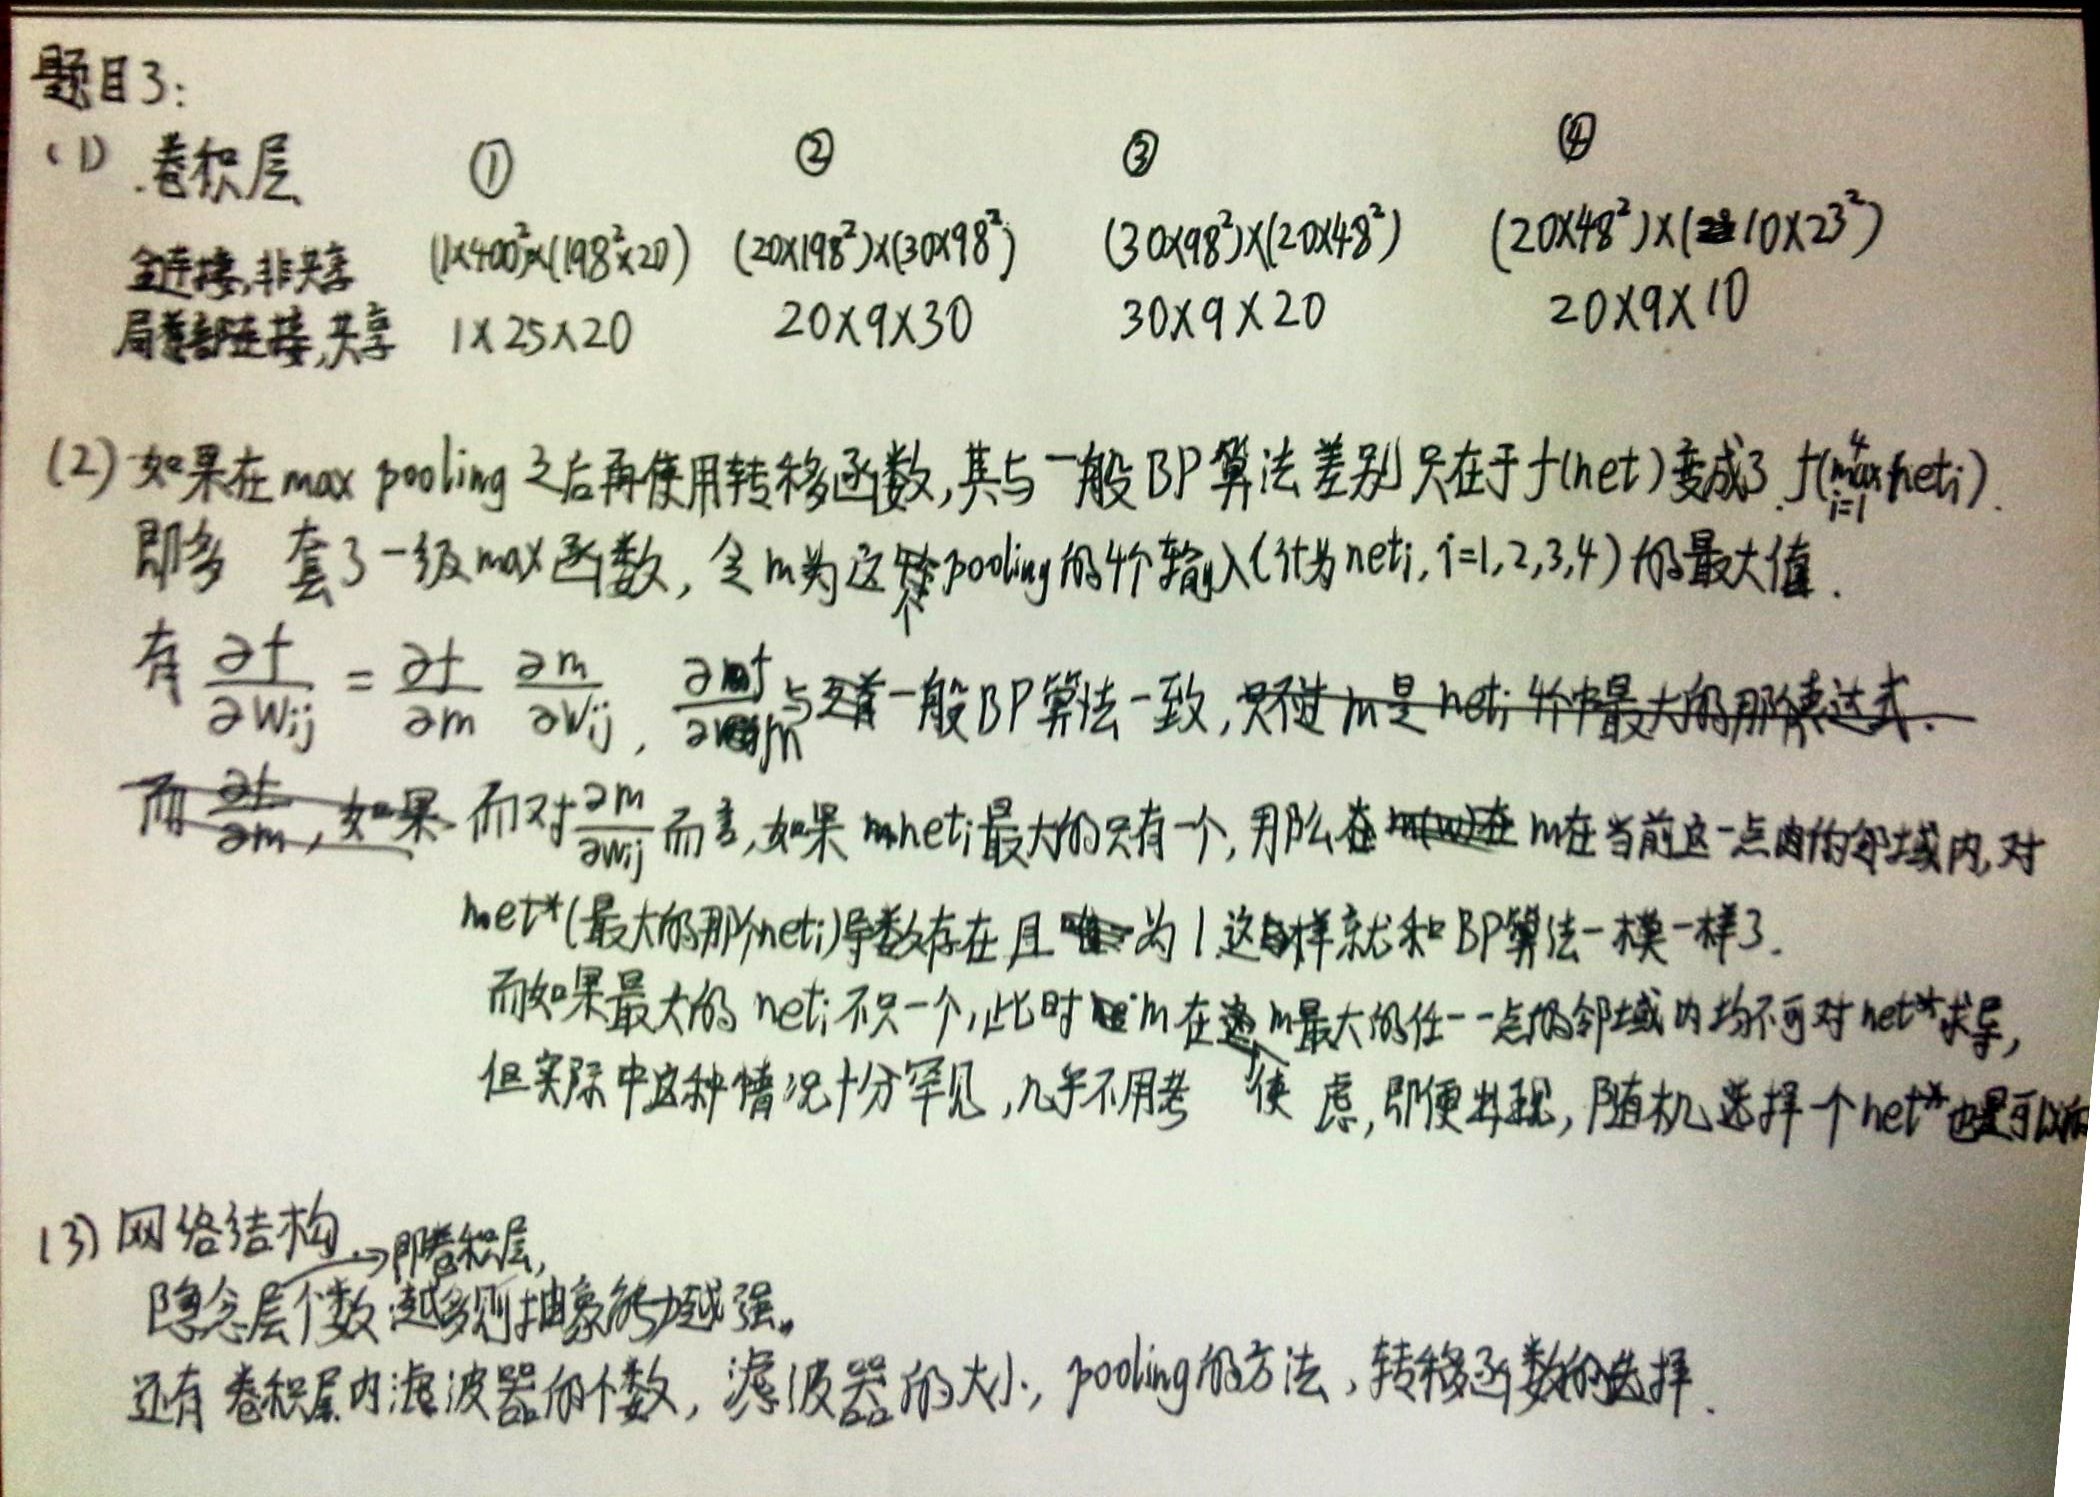 题目3:
(1) 卷积层 ① ② ③ ④
全连接,非共享 (1×400²)×(198²×20) (20×198²)×(30×98²) (30×98²)×(20×48²) (20×48²)×(10×23²)
局部连接,共享 1×25×20 20×9×30 30×9×20 20×9×10
(2) 如果在 max pooling 之后再使用转移函数,其与一般BP算法差别只在于f(net)变成了 f(max_{i=1}^{4} neti).
即多 套了一级max函数, 令m为这个pooling的4个输入(计为neti, i=1,2,3,4)的最大值.
有 ∂f/∂Wij = ∂f/∂m ∂m/∂Wij, ∂f/∂m 与一般BP算法一致, 只不过m是neti 4个中最大的那个表达式.
而 ∂f/∂m, 如果 而对 ∂m/∂wij 而言, 如果 neti最大的只有一个, 那么在 m(w)在 m在当前这一点的邻域内,对
net*(最大的那个neti)导数存在且 为1.这样就和BP算法一模一样了.
而如果最大的 neti不只一个,此时 m在 使m最大的任一一点的邻域内均不可对net*求导,
但实际中这种情况十分罕见,几乎不用考 虑,即便出现,随机选择一个net*也是可以的
(3) 网络结构
→即卷积层,
隐含层个数 越多则抽象能力越强。
还有 卷积层内滤波器的个数, 滤波器的大小, pooling的方法、转移函数的选择.